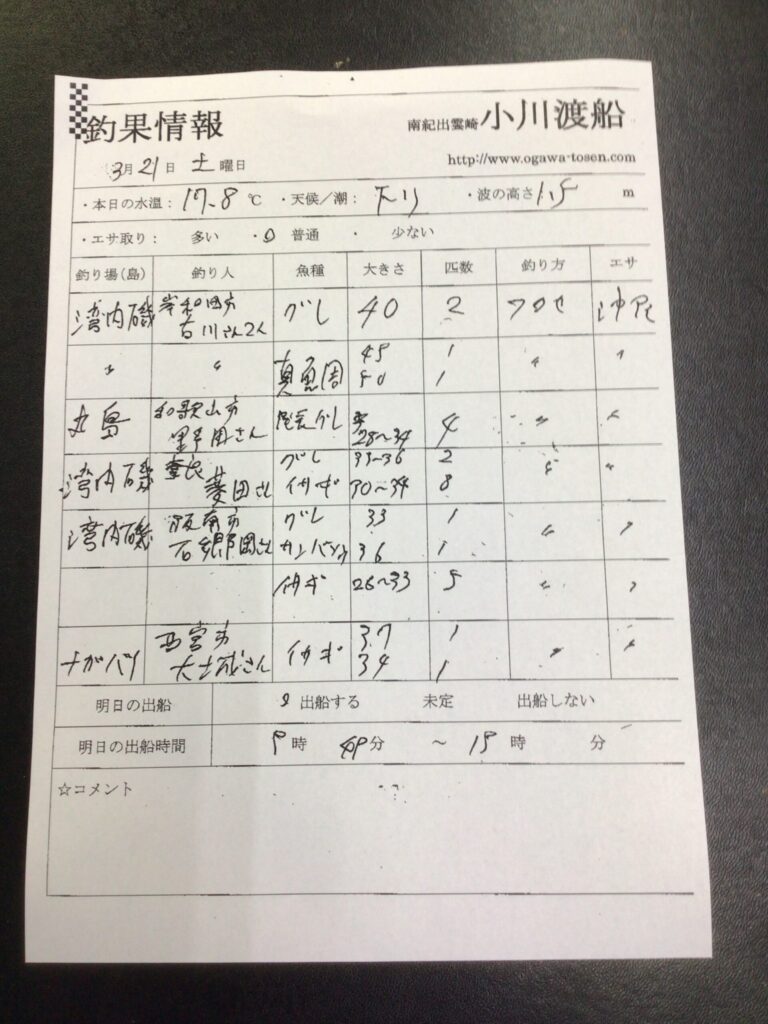 釣果情報 南紀出雲崎 小川渡船
3月21日 土曜日 http://www.ogawa-tosen.com
・本日の水温： 17.8 ℃ ・天候／潮： ・波の高さ 1.5 m
・エサ取り： 多い ・ 普通 ・ 少ない
釣り場(島) 釣り人 魚種 大きさ 匹数 釣り方 エサ
湾内磯 岸和田市 古川さん2人 グレ 40 2 フカセ 沖アミ
〃 〃 真鯛 45 1 〃 〃
50 1
丸島 和歌山市 野田さん 尾長グレ 28〜34 4 〃 〃
湾内磯 奈良 菱田さん グレ 33〜36 2 〃 〃
イサギ 30〜34 8
湾内磯 阪南市 石郷岡さん グレ 33 1 〃 〃
カンパチ 36 1
イサギ 26〜33 5 〃 〃
ナガバイ 西宮市 大士成さん イサギ 37 1 〃 〃
34 1
明日の出船 出船する 未定 出船しない
明日の出船時間 5時 45分 〜 15時 分
☆コメント